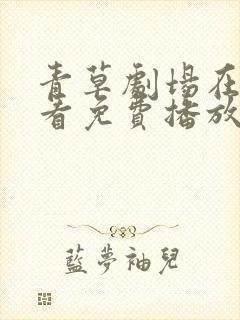 青草劇場在
看免費播放
藍夢袖兒